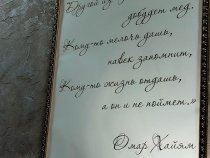 Другой из
доведет мед.
Кому-то мелочь дашь,
навек запомнит,
Кому-то жизнь отдашь,
а он и не поймет.»
Омар Хайям